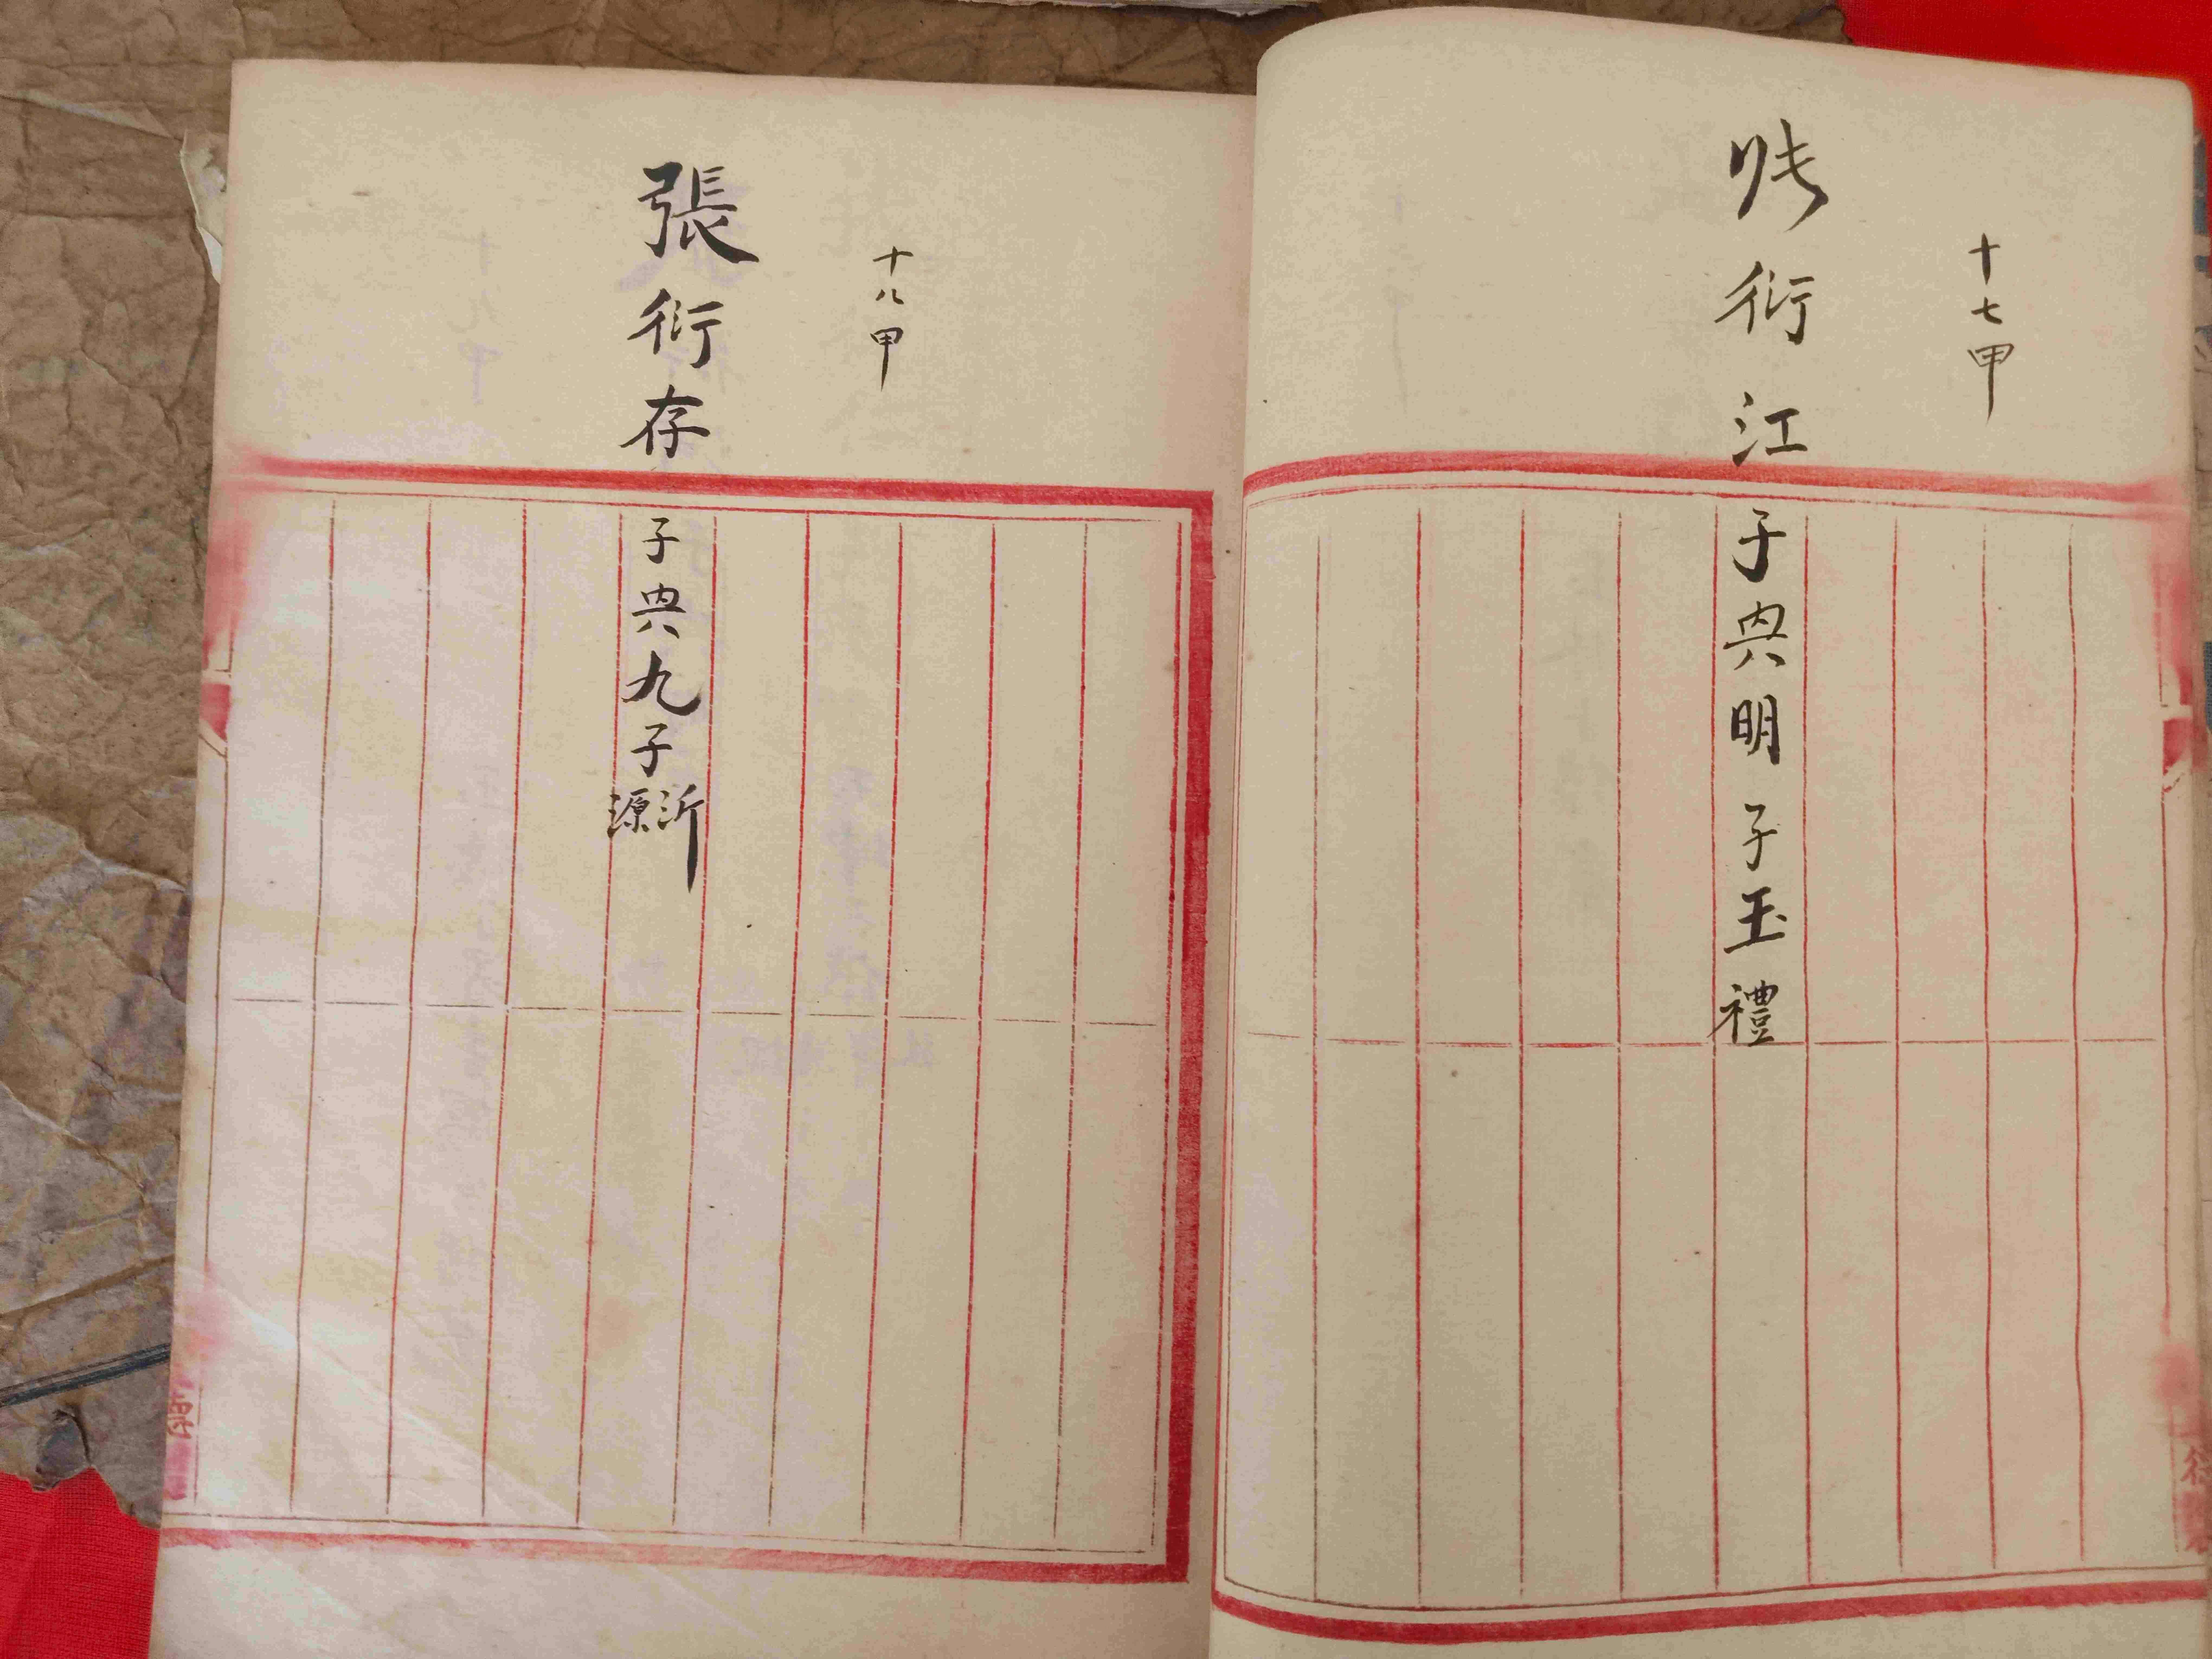 十七甲
张衍江
子典明子玉禮
十八甲
張衍存
子典九子沂源